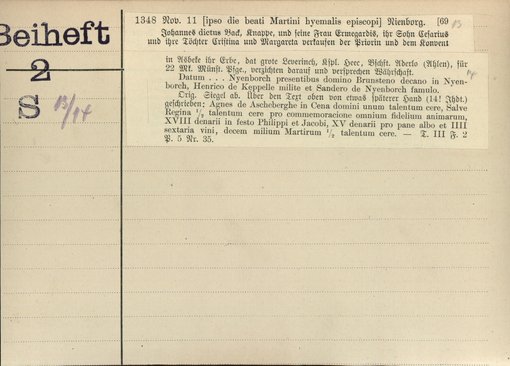 Beiheft
2
S 13/14
1348 Nov. 11 [ipso die beati Martini hyemalis episcopi] Nienborg. [69
13
Johannes dictus Back, Knappe, und seine Frau Ermegardis, ihr Sohn Cesarius
und ihre Töchter Cristina und Margareta verkaufen der Priorin und dem Konvent
14
in Asbeke ihr Erbe, dat grote Leverinch, Kspl. Heec, Bschft. Aderlo (Ahlen), für
22 Mk. Münst. Pfge., verzichten darauf und versprechen Währschaft.
Datum . . . Nyenborch presentibus domino Brunsteno decano in Nyen-
borch, Henrico de Keppelle milite et Sandero de Nyenborch famulo.
Orig. Siegel ab. Über den Text oben von etwas späterer Hand (14! Jhdt.)
geschrieben: Agnes de Ascheberghe in Cena domini unum talentum cere, Salve
Regina ½ talentum cere pro commemoracione omnium fidelium animarum,
XVIII denarii in festo Philippi et Jacobi, XV denarii pro pane albo et IIII
sextaria vini, decem milium Martirum ½ talentum cere. — T. III F. 2
P. 5 Nr. 35.